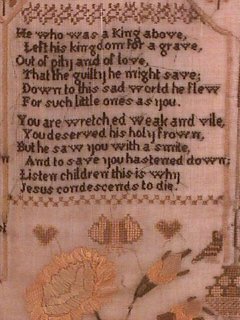 He who was a King above,
Left his kingdom for a grave,
Out of pity and of love,
That the guilty he might save;
Down to this sad world he flew
For such little ones as you.
You are wretched weak and vile,
You deserved his holy frown,
But he saw you with a smile,
And to save you hastened down;
Listen children this is why
Jesus condescends to die.